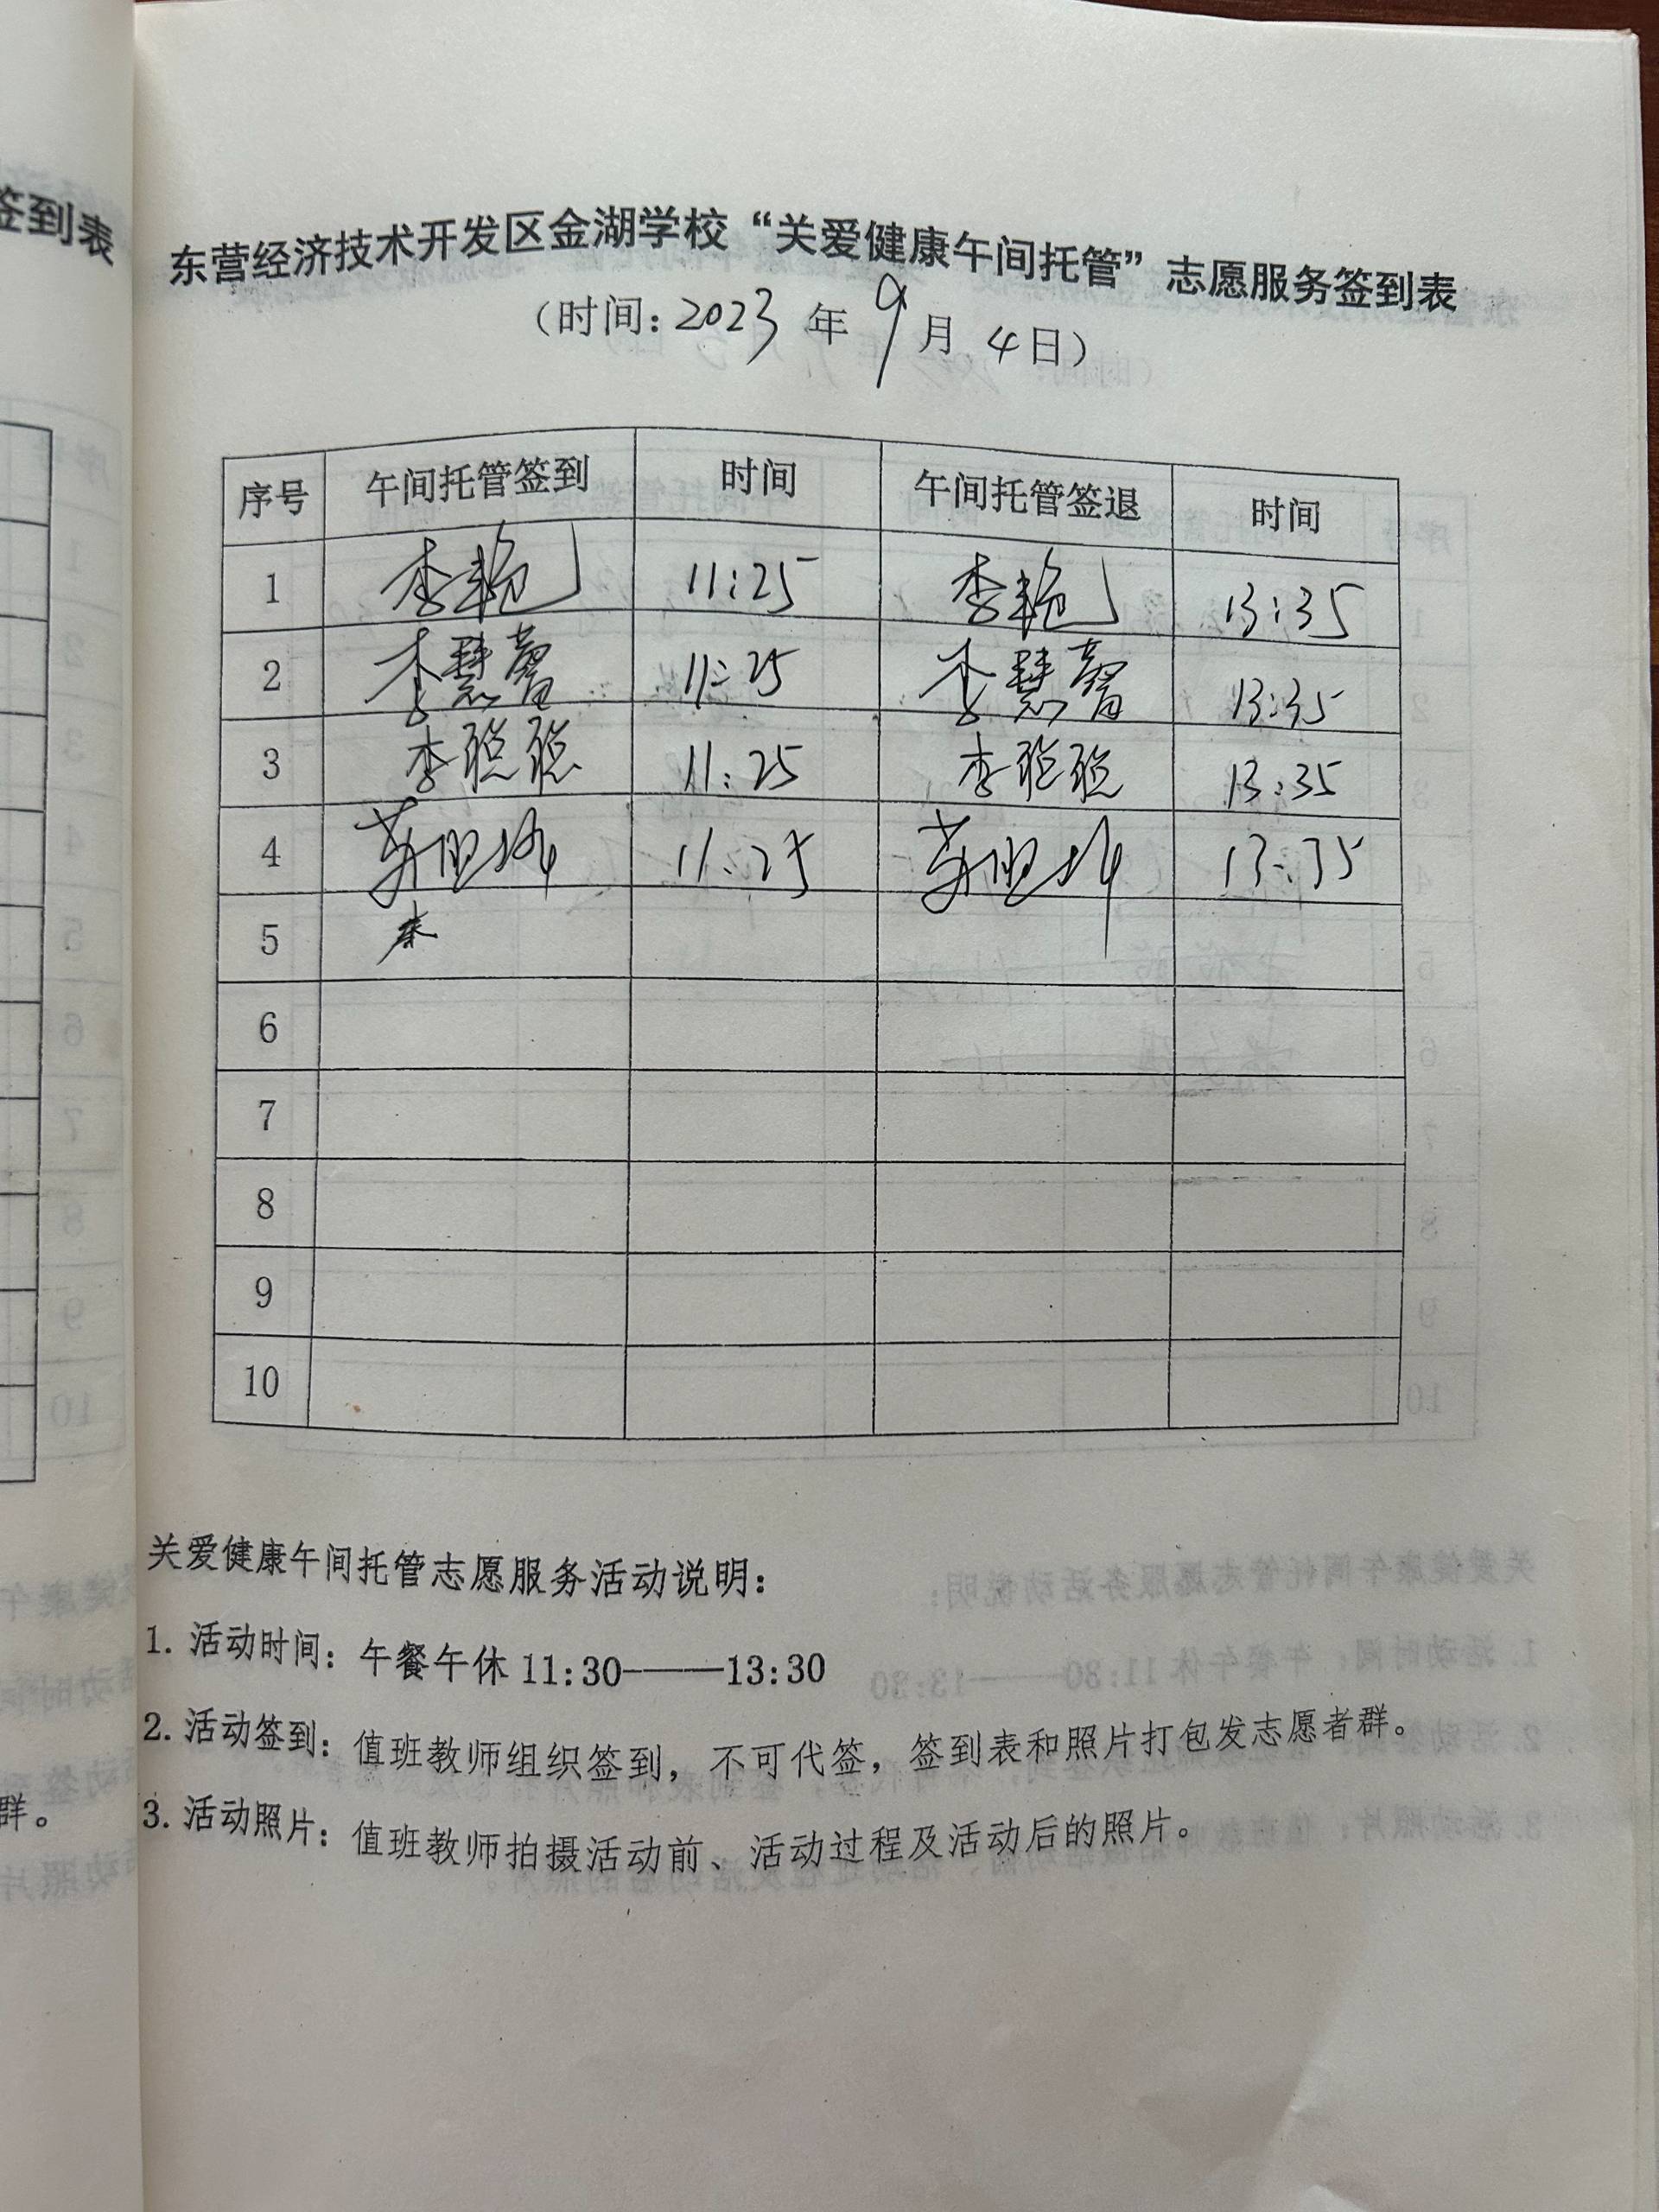 签到表
东营经济技术开发区金湖学校“关爱健康午间托管”志愿服务签到表
（时间：2023年9月4日）
序号 午间托管签到 时间 午间托管签退 时间
1 李艳 11:25 李艳 13:35
2 李慧馨 11:25 李慧馨 13:35
3 李聪聪 11:25 李聪聪 13:35
4 11:25 13:35
5
6
7
8
9
10
关爱健康午间托管志愿服务活动说明：
1. 活动时间：午餐午休 11:30———13:30
2. 活动签到：值班教师组织签到，不可代签，签到表和照片打包发志愿者群。
3. 活动照片：值班教师拍摄活动前、活动过程及活动后的照片。
群。